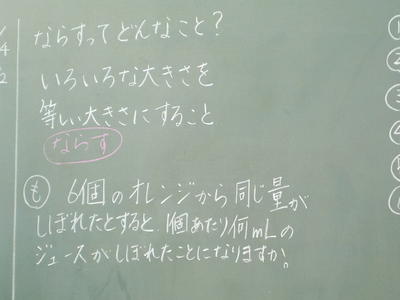 ならすってどんなこと?
いろいろな大きさを
等しい大きさにすること
ならす
も 6個のオレンジから同じ量が
しぼれたとすると、1個あたり何mLの
ジュースがしぼれたことになりますか。